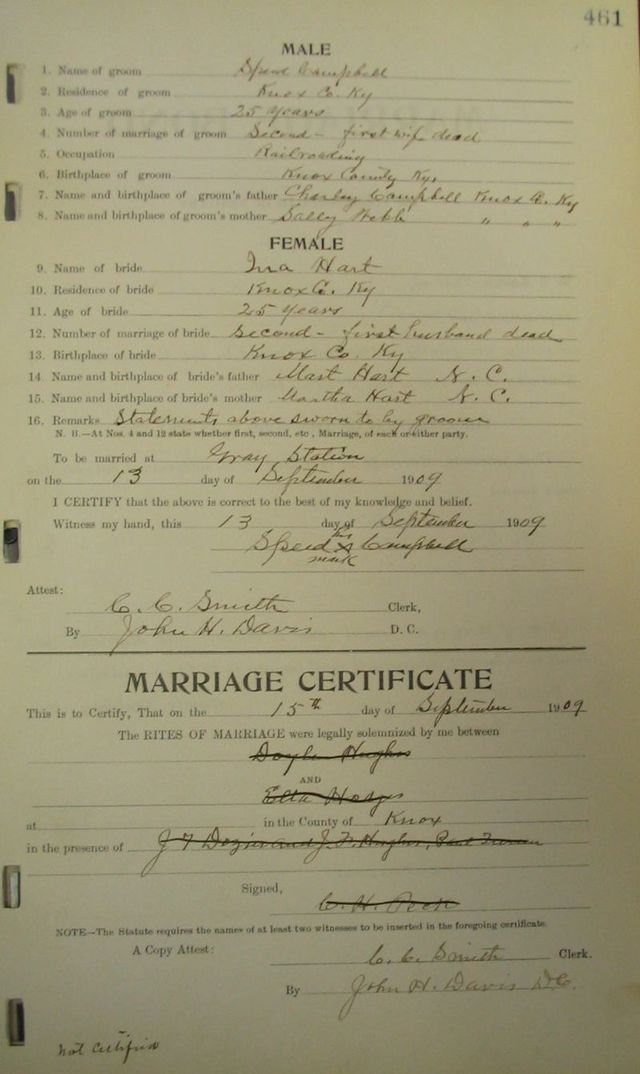 461
MALE
1. Name of groom Speed Campbell
2. Residence of groom Knox Co. Ky
3. Age of groom 25 years
4. Number of marriage of groom Second - first wife dead
5. Occupation Railroading
6. Birthplace of groom Knox County Ky.
7. Name and birthplace of groom's father Charley Campbell Knox Co. Ky
8. Name and birthplace of groom's mother Sally Webb " " "
FEMALE
9. Name of bride Ina Hart
10. Residence of bride Knox Co. Ky
11. Age of bride 25 years
12. Number of marriage of bride Second - first husband dead
13. Birthplace of bride Knox Co. Ky
14. Name and birthplace of bride's father Mart Hart N. C.
15. Name and birthplace of bride's mother Martha Hart N. C.
16. Remarks Statements above sworn to by groom
N. B.—At Nos. 4 and 12 state whether first, second, etc., Marriage, of each or either party.
To be married at Gray Station
on the 13 day of September 1909
I CERTIFY that the above is correct to the best of my knowledge and belief.
Witness my hand, this 13 day of September 1909
Speed his x mark Campbell
Attest:
C. C. Smith Clerk,
By John H. Davis D. C.
MARRIAGE CERTIFICATE
This is to Certify, That on the 15th day of September 1909
The RITES OF MARRIAGE were legally solemnized by me between
Doyle Hughes
AND
Etta
at in the County of Knox
in the presence of J T Dozier and J. F. Hughes,
Signed,
C. H. Peck
NOTE—The Statute requires the names of at least two witnesses to be inserted in the foregoing certificate.
A Copy Attest: C. C. Smith Clerk.
By John H. Davis D.C.
not certified